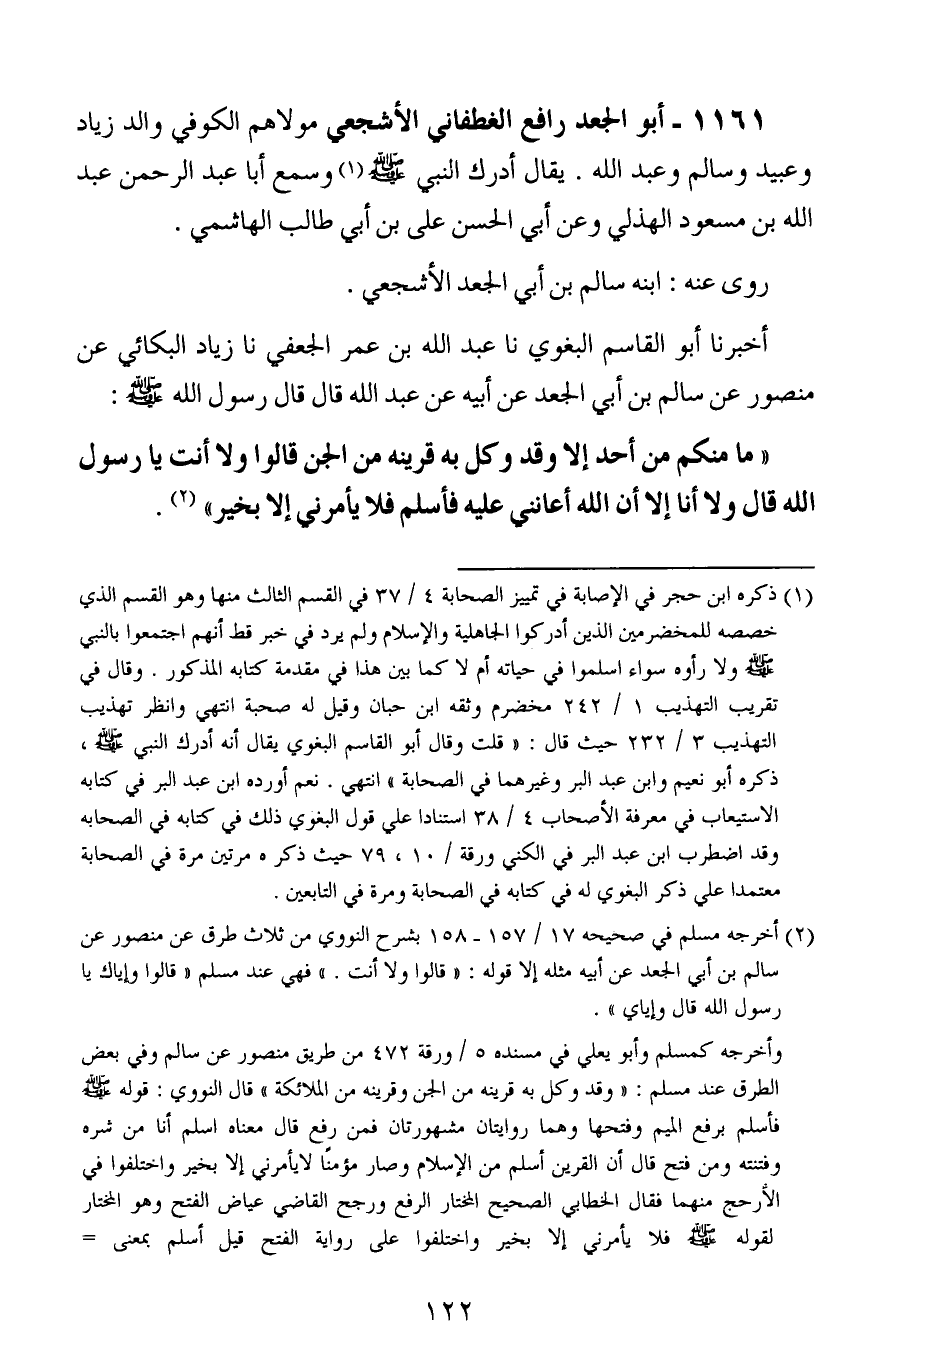 ١١٦١ - أبو الجعد رافع الغطفاني الأشجعي مولاهم الكوفي والد زياد
وعبيد وسالم وعبد الله . يقال أدرك النبي ﷺ (١) وسمع أبا عبد الرحمن عبد
الله بن مسعود الهذلي وعن أبي الحسن على بن أبي طالب الهاشمي .
روى عنه : ابنه سالم بن أبي الجعد الأشجعي .
أخبرنا أبو القاسم البغوي نا عبد الله بن عمر الجعفي نا زياد البكائي عن
منصور عن سالم بن أبي الجعد عن أبيه عن عبد الله قال قال رسول الله ﷺ :
« ما منكم من أحد إلا وقد وكل به قرينه من الجن قالوا ولا أنت يا رسول
الله قال ولا أنا إلا أن الله أعانني عليه فأسلم فلا يأمرني إلا بخير» (٢) .
(١) ذكره ابن حجر في الإصابة في تمييز الصحابة ٤ / ٣٧ في القسم الثالث منها وهو القسم الذي
خصصه للمخضرمين الذين أدركوا الجاهلية والإسلام ولم يرد في خبر قط أنهم اجتمعوا بالنبي
ﷺ ولا رأوه سواء اسلموا في حياته أم لا كما بين هذا في مقدمة كتابه المذكور . وقال في
تقريب التهذيب ١ / ٢٤٢ مخضرم وثقه ابن حبان وقيل له صحبة انتهي وانظر تهذيب
التهذيب ٣ / ٢٣٢ حيث قال : « قلت وقال أبو القاسم البغوي يقال أنه أدرك النبي ﷺ ،
ذكره أبو نعيم وابن عبد البر وغيرهما في الصحابة » انتهي . نعم أورده ابن عبد البر في كتابه
الاستيعاب في معرفة الأصحاب ٤ / ٣٨ استنادا علي قول البغوي ذلك في كتابه في الصحابه
وقد اضطرب ابن عبد البر في الكني ورقة / ١٠ ، ٧٩ حيث ذكر ه مرتين مرة في الصحابة
معتمدا علي ذكر البغوي له في كتابه في الصحابة ومرة في التابعين .
(٢) أخرجه مسلم في صحيحه ١٧ / ١٥٧ - ١٥٨ بشرح النووي من ثلاث طرق عن منصور عن
سالم بن أبي الجعد عن أبيه مثله إلا قوله : « قالوا ولا أنت . » فهي عند مسلم « قالوا وإياك يا
رسول الله قال وإياي » .
وأخرجه كمسلم وأبو يعلي في مسنده ٥ / ورقة ٤٧٢ من طريق منصور عن سالم وفي بعض
الطرق عند مسلم : « وقد وكل به قرينه من الجن وقرينه من الملائكة » قال النووي : قوله ﷺ
فأسلم برفع الميم وفتحها وهما روايتان مشهورتان فمن رفع قال معناه اسلم أنا من شره
وفتنته ومن فتح قال أن القرين أسلم من الإسلام وصار مؤمنًا لايأمرني إلا بخير واختلفوا في
الأرجح منهما فقال الخطابي الصحيح المختار الرفع ورجح القاضي عياض الفتح وهو المختار
لقوله ﷺ فلا يأمرني إلا بخير واختلفوا على رواية الفتح قيل أسلم بمعنى =
١٢٢